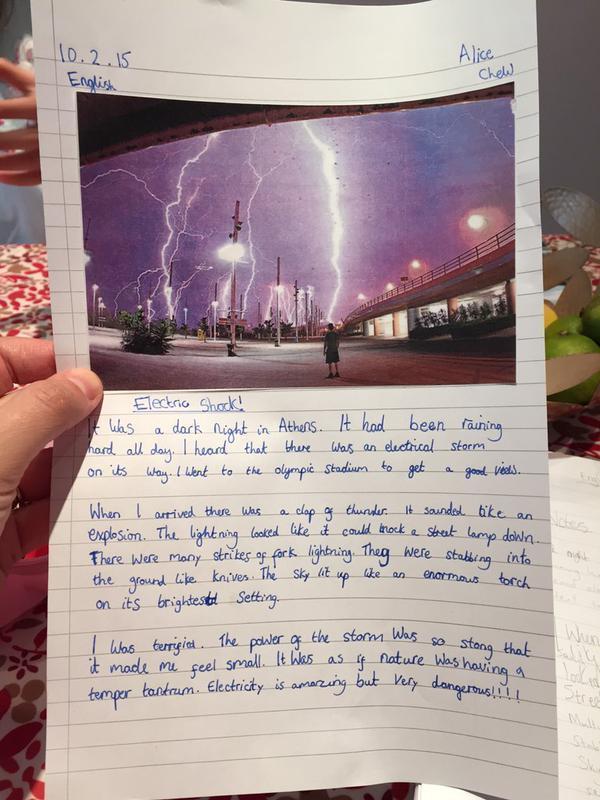 10.2.15
Alice
English
Chew
Electric Shock!
It was a dark night in Athens. It had been raining
hard all day. I heard that there was an electrical storm
on its way. I went to the olympic Stadium to get a good view.
When I arrived there was a clap of thunder. It sounded like an
explosion. The lightning looked like it could knock a street lamp down.
There were many strikes of fork lightning. They were stabbing into
the ground like knives. The sky lit up like an enormous torch
on its brightest setting.
I was terrified. The power of the storm was so stong that
it made me feel small. It was as if nature was having a
temper tantrum. Electricity is amazing but very dangerous!!!!
Notes
When